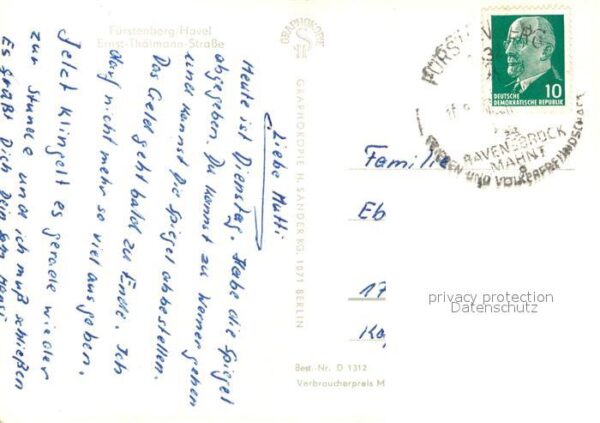 Fürstenberg/Havel
Ernst-Thälmann-Straße
Liebe Mutti
Heute ist Dienstag. Habe die Spiegel
abgegeben. Du kannst zu Werner gehen
und kannst die Spiegel abbestellen.
Das Geld geht bald zu Ende. Ich
darf nicht mehr so viel ausgeben.
Jetzt klingelt es gerade wieder
zur Stunde und ich muß schließen
Es grüßt Dich Dein Sohn
GRAPHOKOPIE
GRAPHOKOPIE H. SANDER KG. 1071 BERLIN
DEUTSCHE
DEMOKRATISCHE REPUBLIK
10
RAVENSBRÜCK
MAHNT
UND VÖLKERFREUNDSCHAFT
Familie
Eb
17
privacy protection
Datenschutz
Best.-Nr. D 1312
Verbraucherpreis M